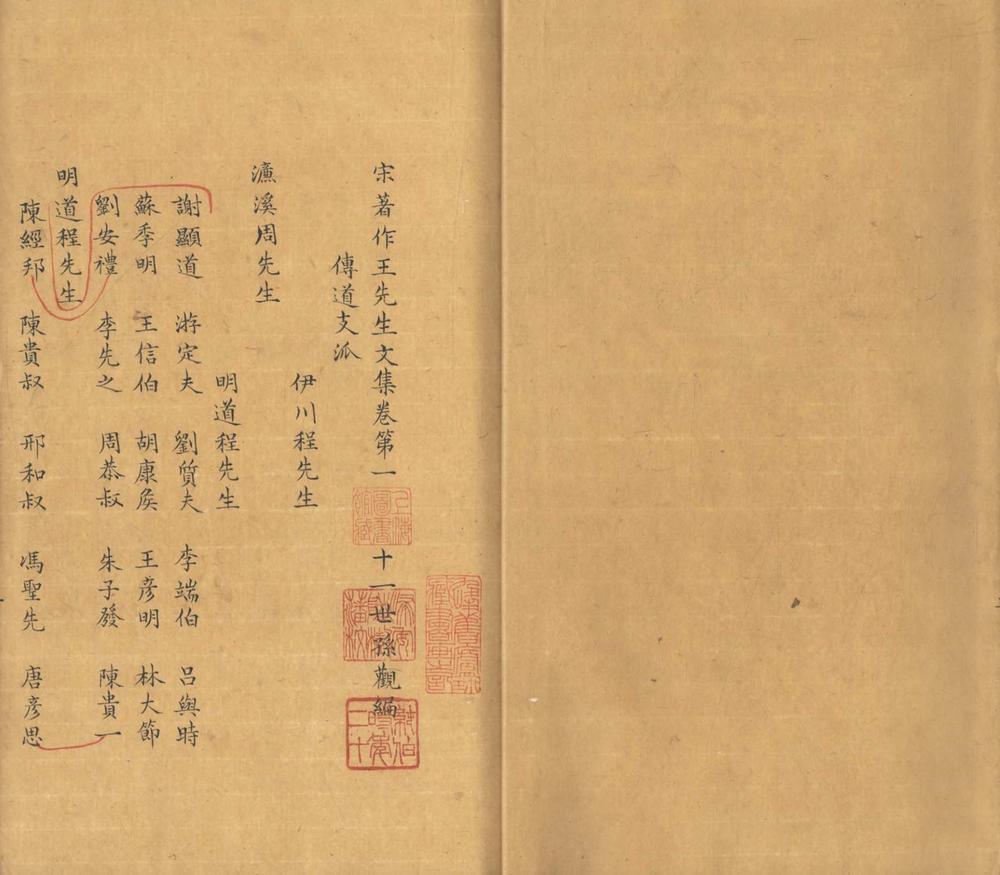 宋著作王先生文集卷第一 十一世孫觀編
傳道支派
伊川程先生
濂溪周先生
明道程先生
謝顯道 游定夫 劉質夫 李端伯 呂與時
蘇季明 王信伯 胡康矦 王彦明 林大節
劉安禮 李先之 周恭叔 朱子發 陳貴一
明道程先生
陳經邦 陳貴叔 邢和叔 馮聖先 唐彦思
上海圖書館藏